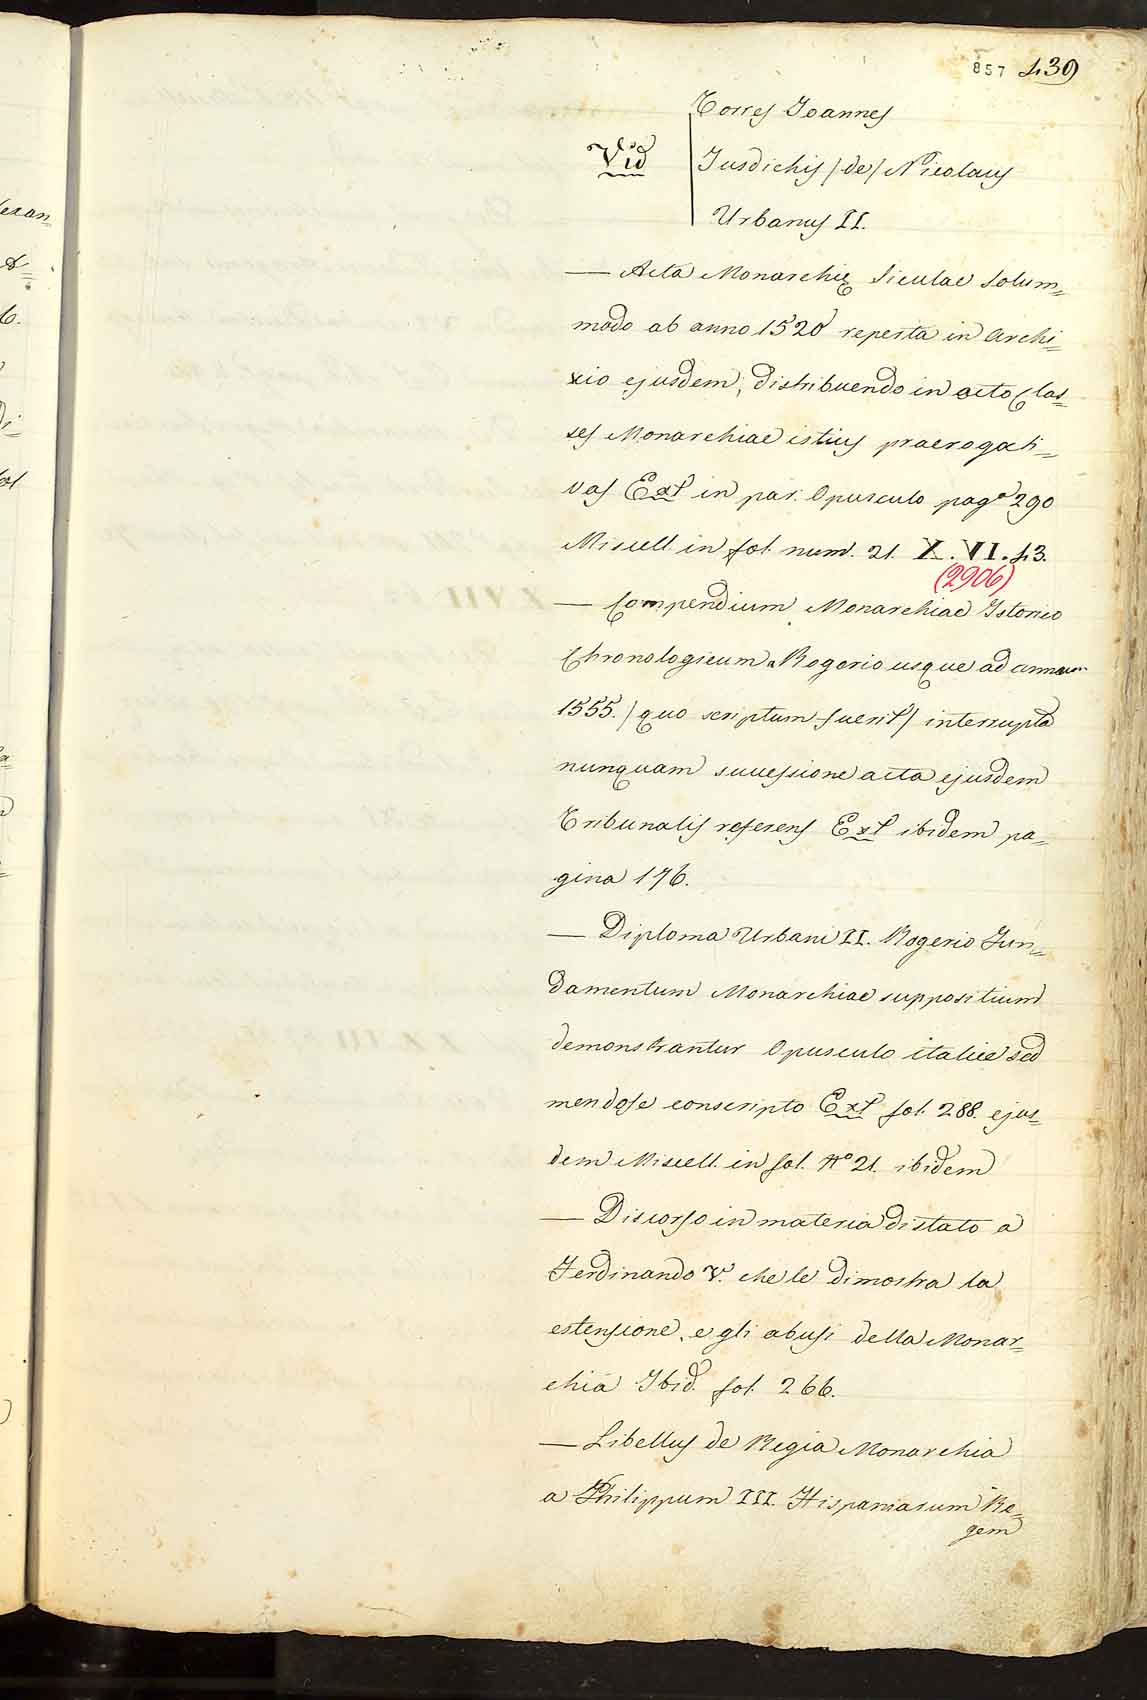 857 439
Torres Joannes
Vid Jusdichis /de/ Nicolaus
Urbanus II.
— Acta Monarchię Siculae solum=
modo ab anno 1520 reperta in Archi=
xio ejusdem, distribuendo in octo Clas=
ses Monarchiae istius praerogati=
vas Ext in par. Opusculo pag.a 290
Miscell. in fol. num. 21. X. VI. 43.
(2906)
— Compendium Monarchiae Istorico
Chronologicum a Rogerio usque ad annum
1555. /quo scriptum fuerit/ interrupta
nunquam successione acta ejusdem
Tribunalis referens Ext ibidem pa=
gina 176.
— Diploma Urbani II. Rogerio Fun=
damentum Monarchiae suppositium
demonstrantur Opusculo italice sed
mendose conscripto Ext fol. 288. ejus=
dem Miscell. in fol. No 21. ibidem
— Discorso in materia distato a
Ferdinando V. che le dimostra la
estensione, e gli abusi della Monar=
chia Ibid. fol. 266.
— Libellus de Regia Monarchia
a Philippum III. Hispaniarum Re=
gem